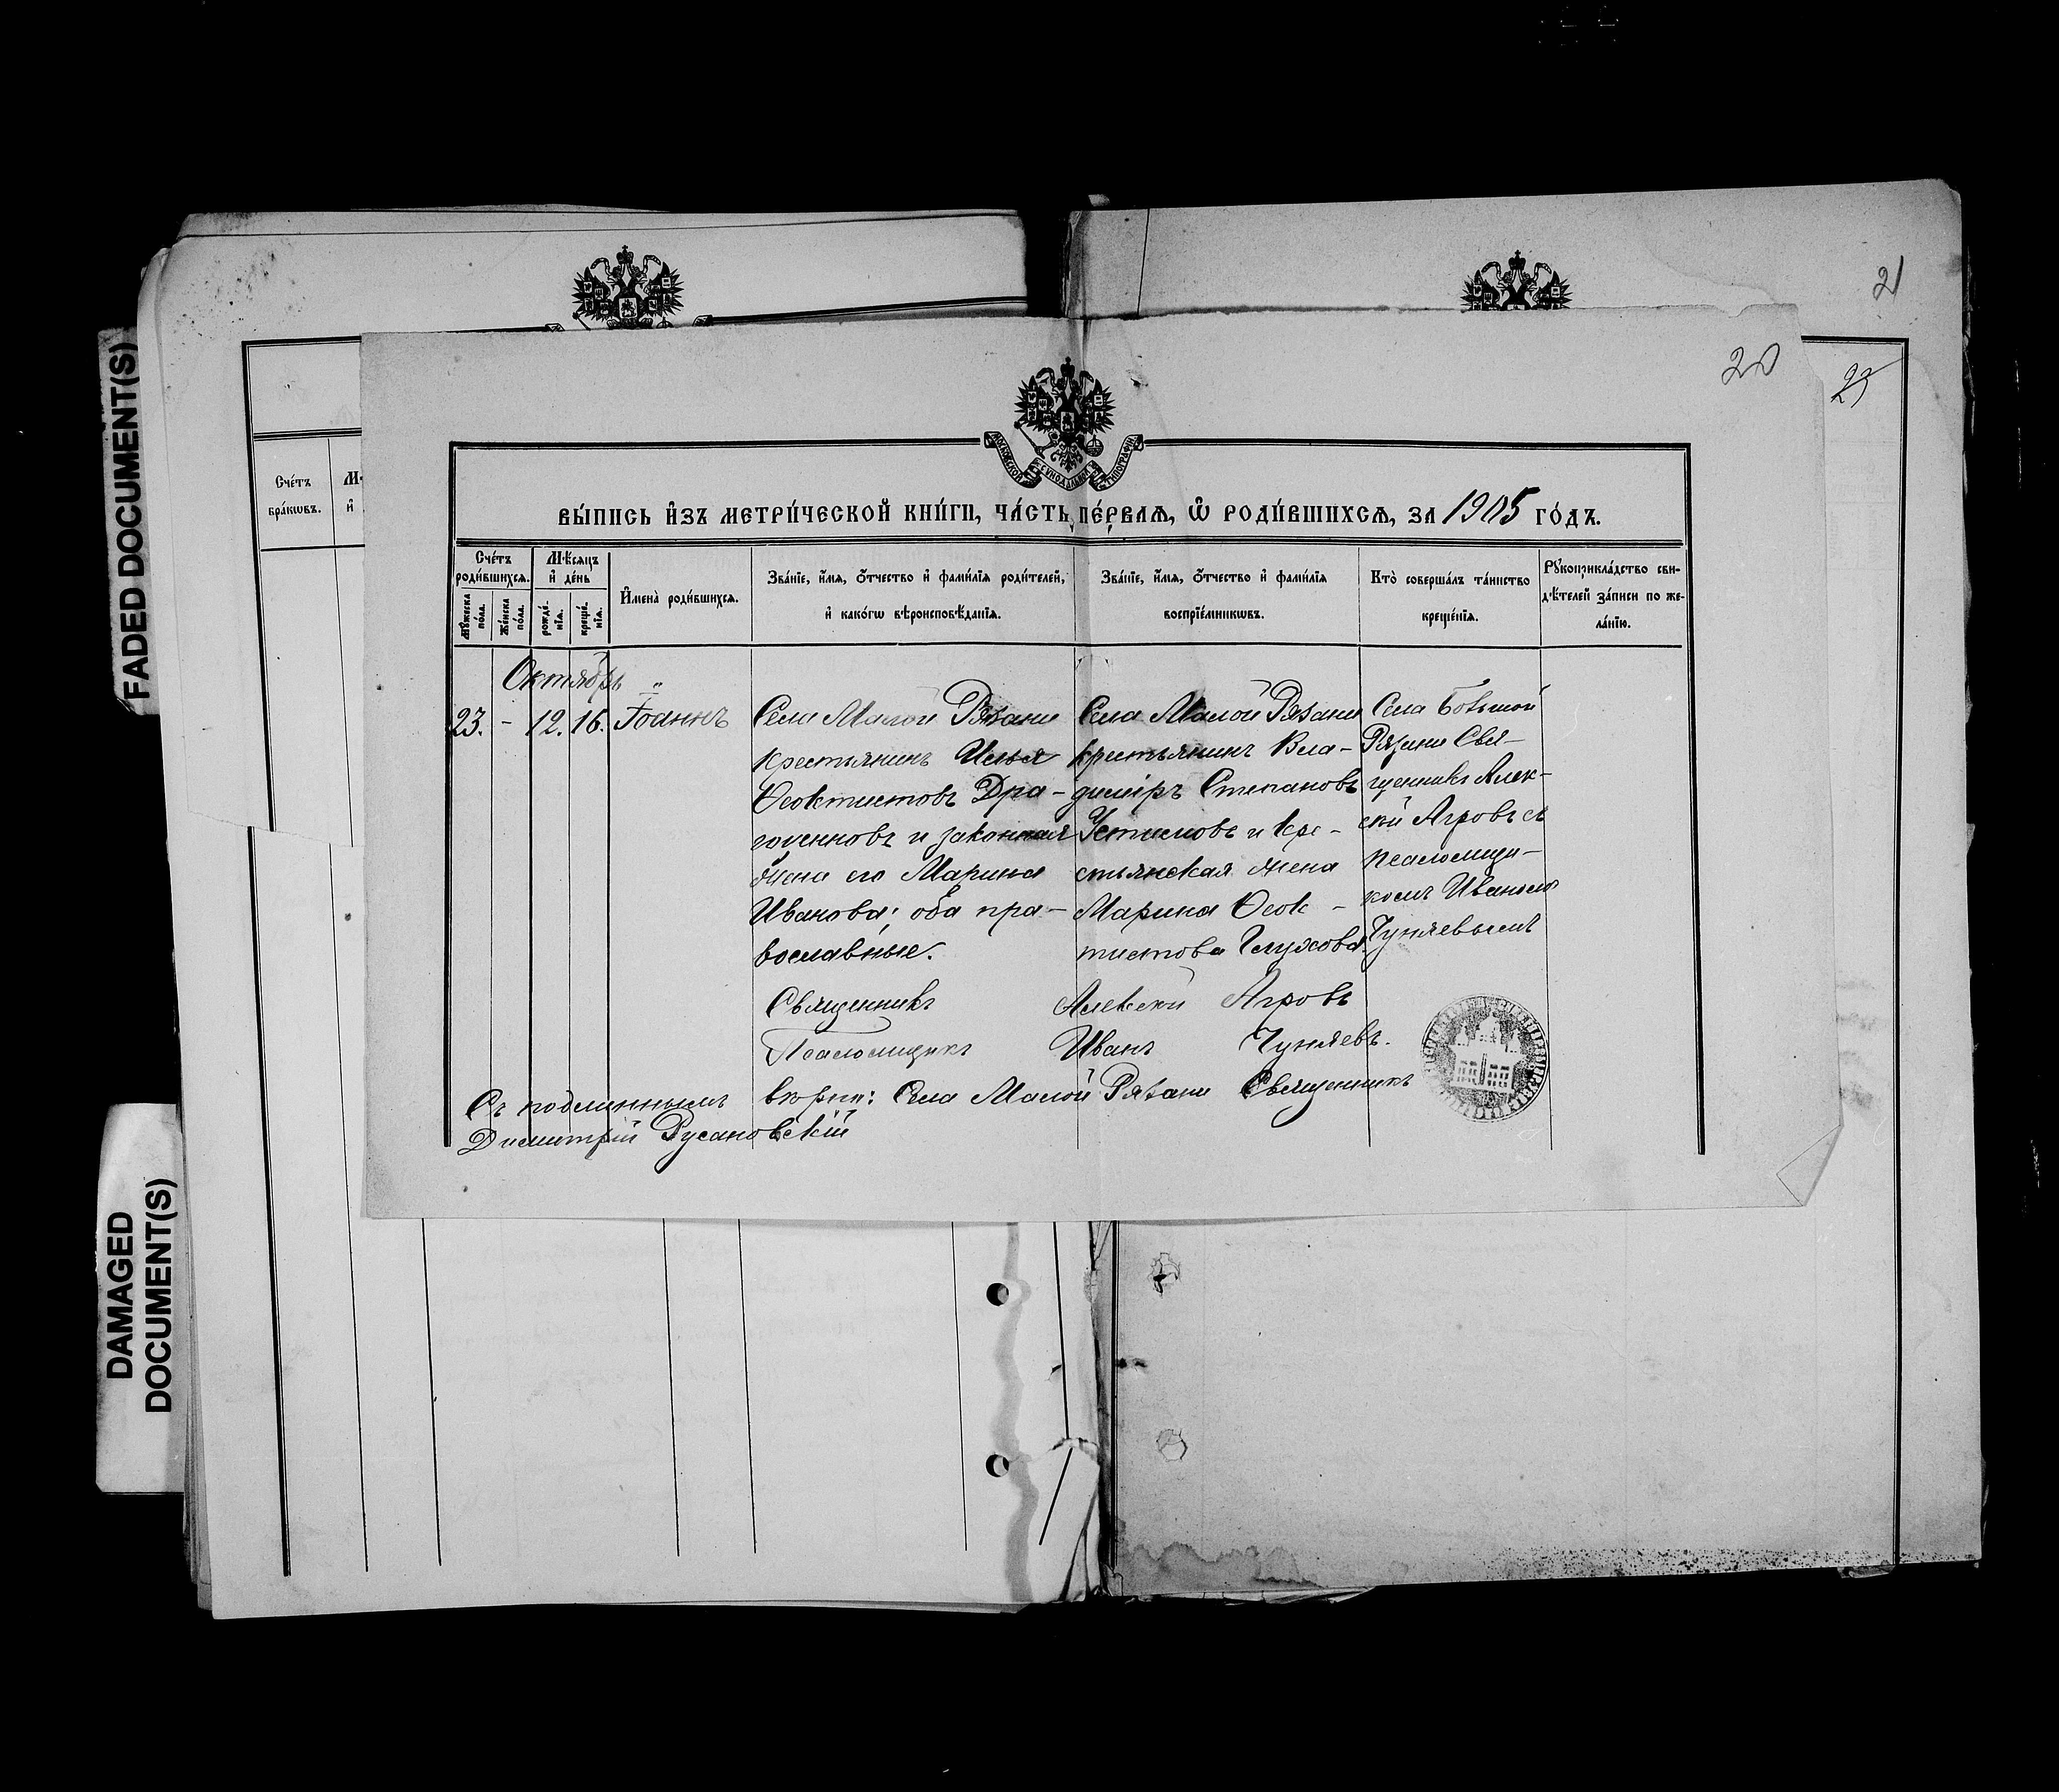 FADED DOCUMENT(S)
DAMAGED
DOCUMENT(S)
21
20
23
Сче́тъ
бра́кѡвъ.
М
и҆
МОСКОВСКОЙ СѴНОДАЛЬНОЙ ТИПОГРАФІИ
ВЫ́ПИСЬ И҆ЗЪ МЕТРИ́ЧЕСКОЙ КНИ́ГИ, ЧА́СТЬ ПЕ́РВАѦ, Ѽ РОДИ́ВШИХСѦ, ЗА 1905 ГО́ДЪ.
Сче́тъ
роди́вшихсѧ.
Мꙋ́жеска
по́ла.
Же́нска
по́ла.
Мѣ́сѧцъ
и҆ де́нь
рожде́-
нїѧ.
креще́-
нїѧ.
И҆мена̀ роди́вшихсѧ.
Зва́нїе, и҆́мѧ, ѻ҆́тчество и҆ фами́лїѧ роди́телей,
и҆ како́гѡ вѣроисповѣ́данїѧ.
Зва́нїе, и҆́мѧ, ѻ҆́тчество и҆ фами́лїѧ
воспрїе́мникѡвъ.
Кто̀ соверша́лъ та́инство
креще́нїѧ.
Рꙋкоприкла́дство сви-
дѣ́телей за́писи по же-
ла́нїю.
Октябрь
23. - 12. 16. Іоаннъ
Села Малой Рязани
крестьянинъ Илья
Ѳеоктистовъ Дра-
гоченновъ и законная
жена его Марина
Иванова; оба пра-
вославные.
Села Малой Рязани
крестьянинъ Вла-
диміръ Степановъ
Устиновъ и кре-
стьянская жена
Марина Ѳеок-
тистова Глухова.
Села Большой
Рязани Свя-
щенникъ Алек-
сѣй Агровъ съ
псаломщи-
комъ Иваномъ
Чуняевымъ
Священникъ Алексѣй Агровъ
Псаломщикъ Иванъ Чуняевъ.
Съ подлиннымъ вѣрно: Села Малой Рязани Священникъ
Димитрій Русановскій